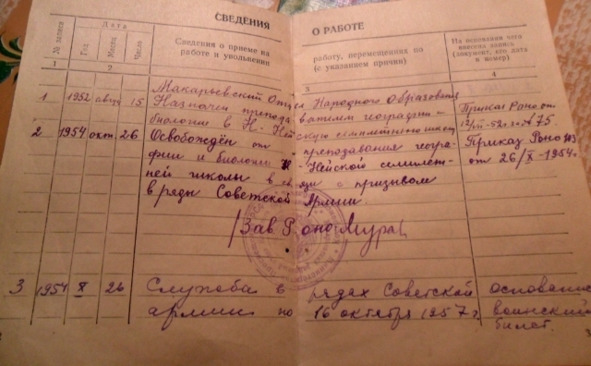 СВЕДЕНИЯ О РАБОТЕ
№ записи Дата Сведения о приеме на работу, перемещениях по работе и увольнении (с указанием причин) На основании чего внесена запись (документ, его дата и номер)
Год Месяц Число
1 2 3 4
Макарьевский Отдел Народного Образования
1 1952 авгу 15 Назначен преподавателем географии - Приказ Роно от
биологии в Н. Нейскую семилетнюю школу №75.
2 1954 окт. 26 Освобождён от преподавания геогра- Приказ Роно
фии и биологии Н-Нейской семилет- от 26/X-1954г
ней школы в связи с призывом
в ряды Советской Армии.
Зав Роно
3 1954 X 26 Служба в рядах Советской основание
армии по 16 октября 1957 г. воинский
билет.